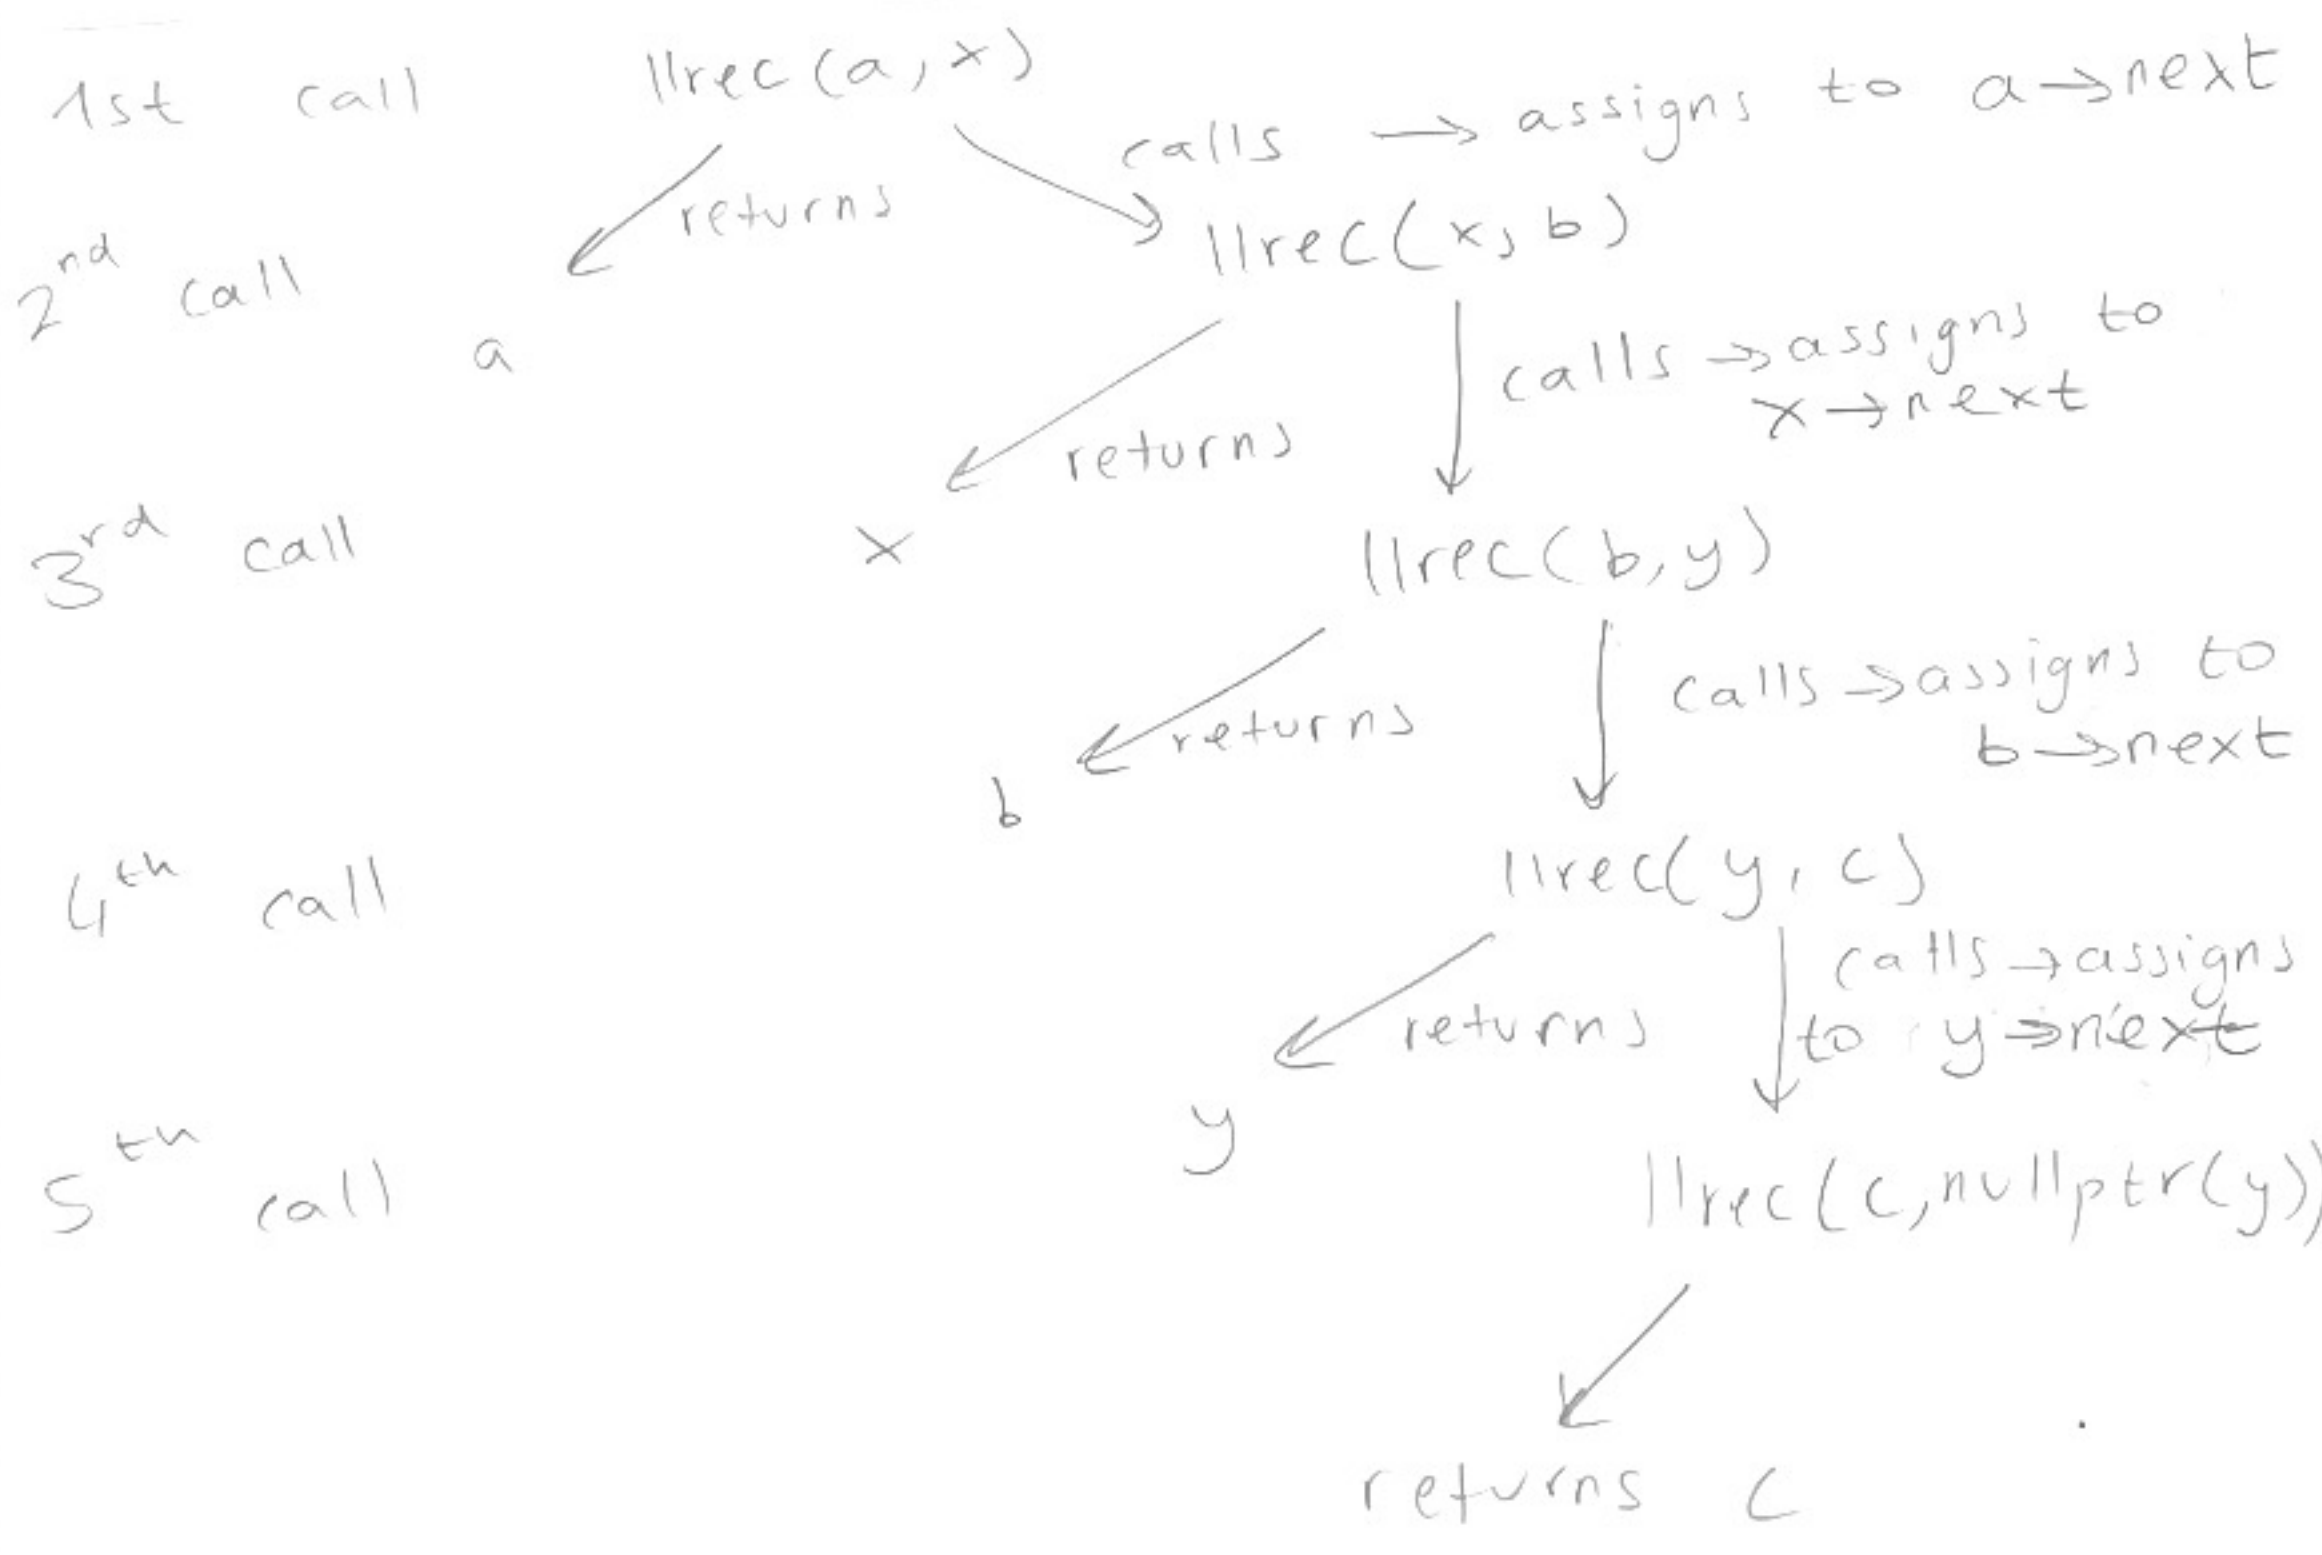 1st call llrec(a, x)
calls → assigns to a→next
returns
2nd call a llrec(x, b)
calls → assigns to
x→next
returns
3rd call x llrec(b, y)
calls → assigns to
b→next
returns
b
4th call llrec(y, c)
calls → assigns
to y→next
returns
y
5th call llrec(c, nullptr(y))
returns c